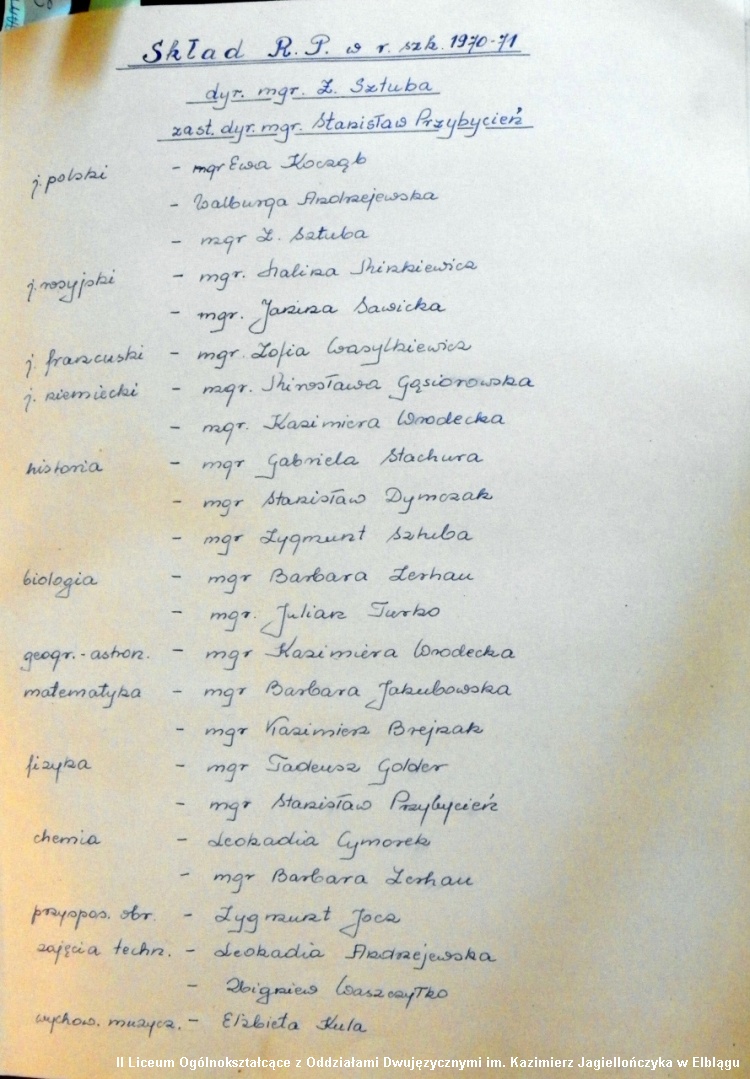 Skład R. P. w r. szk. 1970-71
dyr. mgr. Z. Sztuba
zast. dyr. mgr. Stanisław Przybycień
j. polski - mgr Ewa Kocząb
- Walburga Andrzejewska
- mgr Z. Sztuba
j. rosyjski - mgr. Halina Minkiewicz
- mgr. Janina Sawicka
j. francuski - mgr. Zofia Wasylkiewicz
j. niemiecki - mgr. Mirosława Gąsiorowska
- mgr. Kazimiera Wrodecka
historia - mgr Gabriela Stachura
- mgr Stanisław Dymczak
- mgr Zygmunt Sztuba
biologia - mgr Barbara Zerhau
- mgr. Julian Turko
geogr.-astron. - mgr Kazimiera Wrodecka
matematyka - mgr Barbara Jakubowska
- mgr Kazimierz Brejnak
fizyka - mgr Tadeusz Golder
- mgr Stanisław Przybycień
chemia - Leokadia Cymorek
- mgr Barbara Zerhau
przyspos. obr. - Zygmunt Jocz
zajęcia techn. - Leokadia Andrzejewska
- Zbigniew Waszczyłko
wychow. muzycz. - Elżbieta Kula
II Liceum Ogólnokształcące z Oddziałami Dwujęzycznymi im. Kazimierz Jagiellończyka w Elblągu